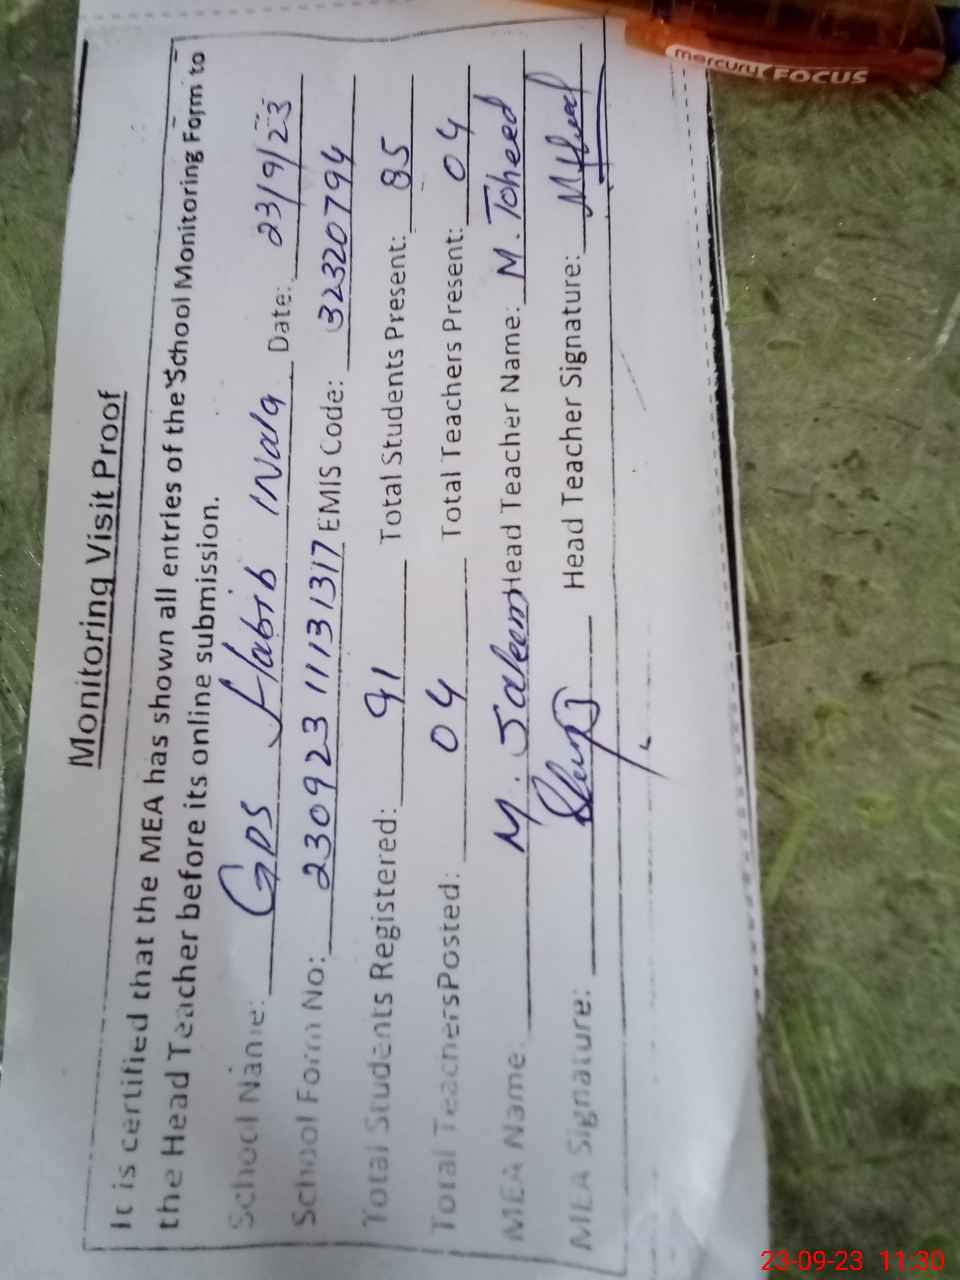 Monitoring Visit Proof
It is certified that the MEA has shown all entries of the School Monitoring Form to
the Head Teacher before its online submission.
School Name: GPS Habib Wala Date: 23/9/23
School Form No: 230923 111 31317 EMIS Code: 32320794
Total Students Registered: 91 Total Students Present: 85
Total Teachers Posted: 04 Total Teachers Present: 04
MEA Name: M. Saleem Head Teacher Name: M. Toheed
MEA Signature: Head Teacher Signature:
mercury FOCUS
23-09-23 11:30